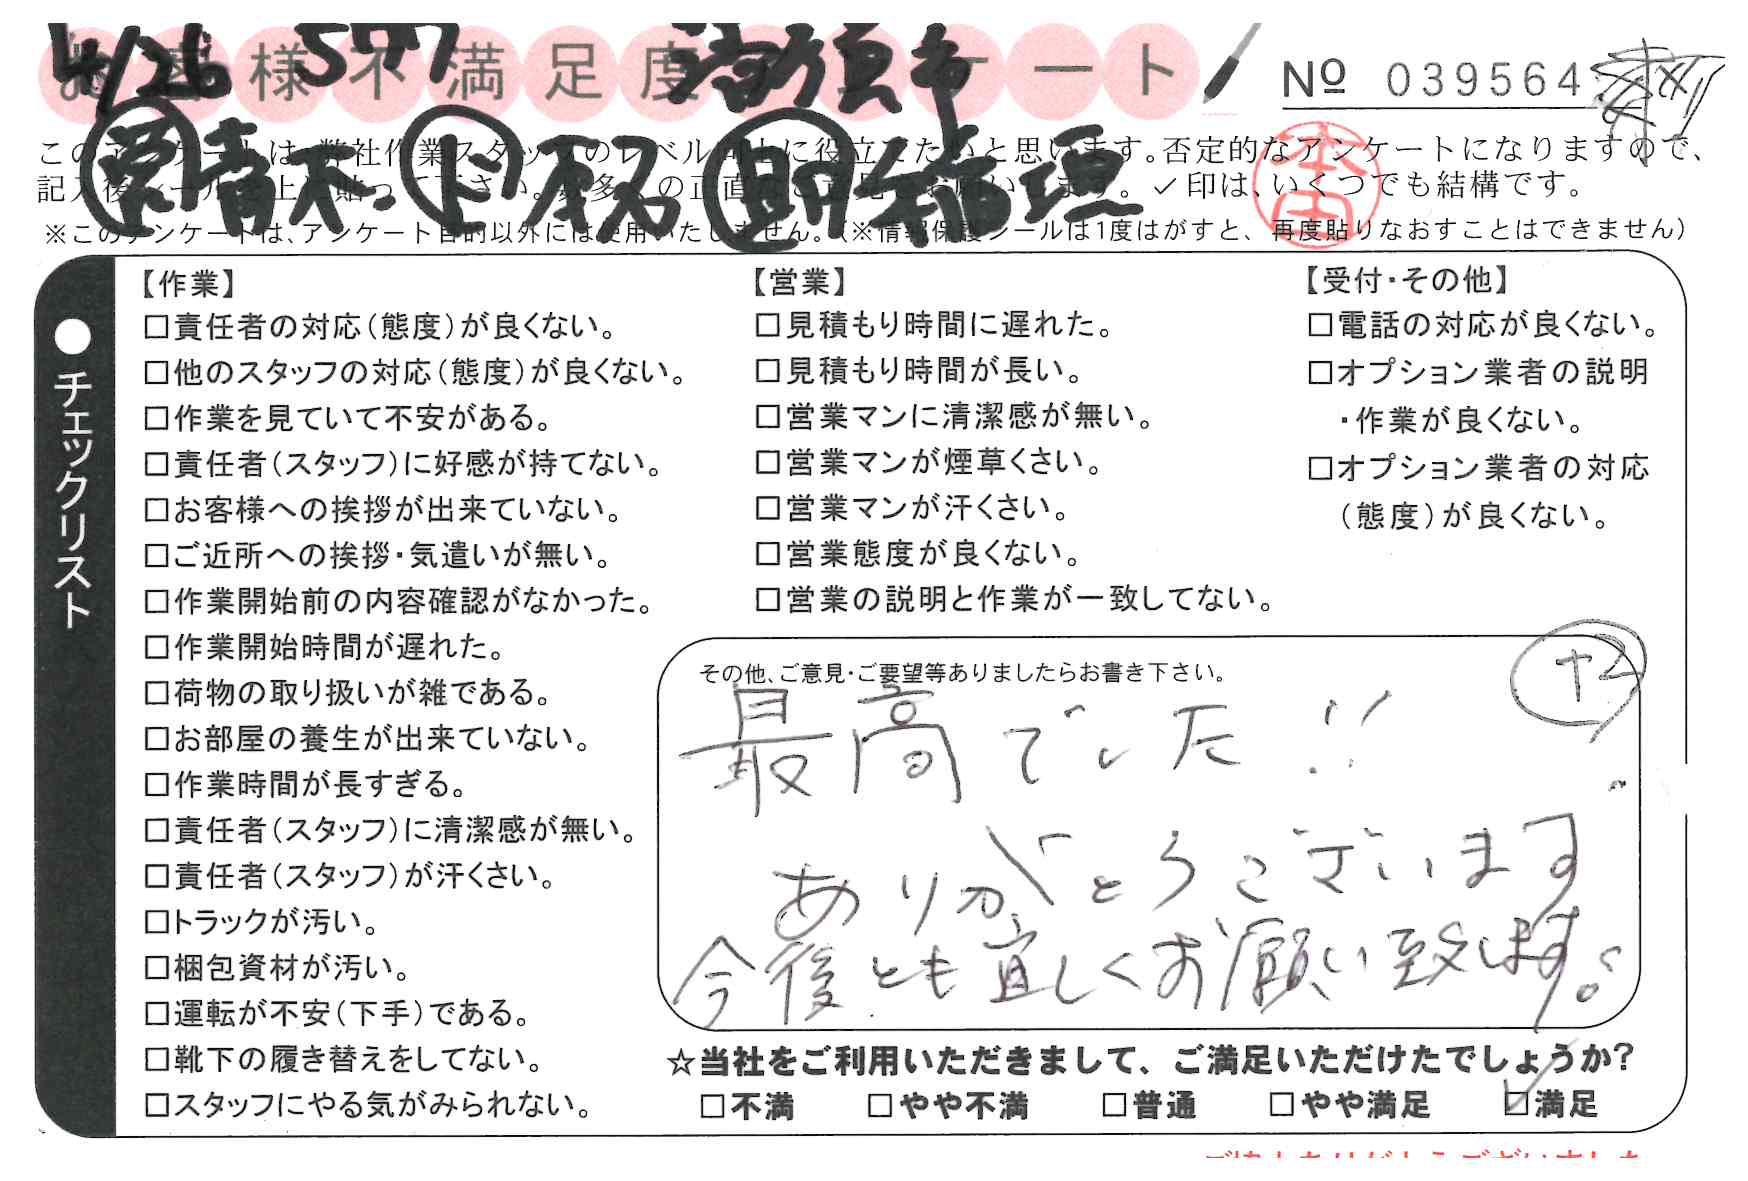 お客様不満足度アンケート
4/26
Nº 039564
このアンケートは、弊社作業スタッフのレベル向上に役立てたいと思います。否定的なアンケートになりますので、
記入後シールを上に貼って下さい。 の正直なご意見をお願いします。✓印は、いくつでも結構です。
※このアンケートは、アンケート目的以外には使用いたしません。(※情報保護シールは1度はがすと、再度貼りなおすことはできません)
●チェックリスト
【作業】
□責任者の対応(態度)が良くない。
□他のスタッフの対応(態度)が良くない。
□作業を見ていて不安がある。
□責任者(スタッフ)に好感が持てない。
□お客様への挨拶が出来ていない。
□ご近所への挨拶・気遣いが無い。
□作業開始前の内容確認がなかった。
□作業開始時間が遅れた。
□荷物の取り扱いが雑である。
□お部屋の養生が出来ていない。
□作業時間が長すぎる。
□責任者(スタッフ)に清潔感が無い。
□責任者(スタッフ)が汗くさい。
□トラックが汚い。
□梱包資材が汚い。
□運転が不安(下手)である。
□靴下の履き替えをしてない。
□スタッフにやる気がみられない。
【営業】
□見積もり時間に遅れた。
□見積もり時間が長い。
□営業マンに清潔感が無い。
□営業マンが煙草くさい。
□営業マンが汗くさい。
□営業態度が良くない。
□営業の説明と作業が一致してない。
【受付・その他】
□電話の対応が良くない。
□オプション業者の説明
・作業が良くない。
□オプション業者の対応
(態度)が良くない。
その他、ご意見・ご要望等ありましたらお書き下さい。
最高でした!!
ありがとうございます
今後とも宜しくお願い致します。
☆当社をご利用いただきまして、ご満足いただけたでしょうか?
□不満 □やや不満 □普通 □やや満足 ☑満足